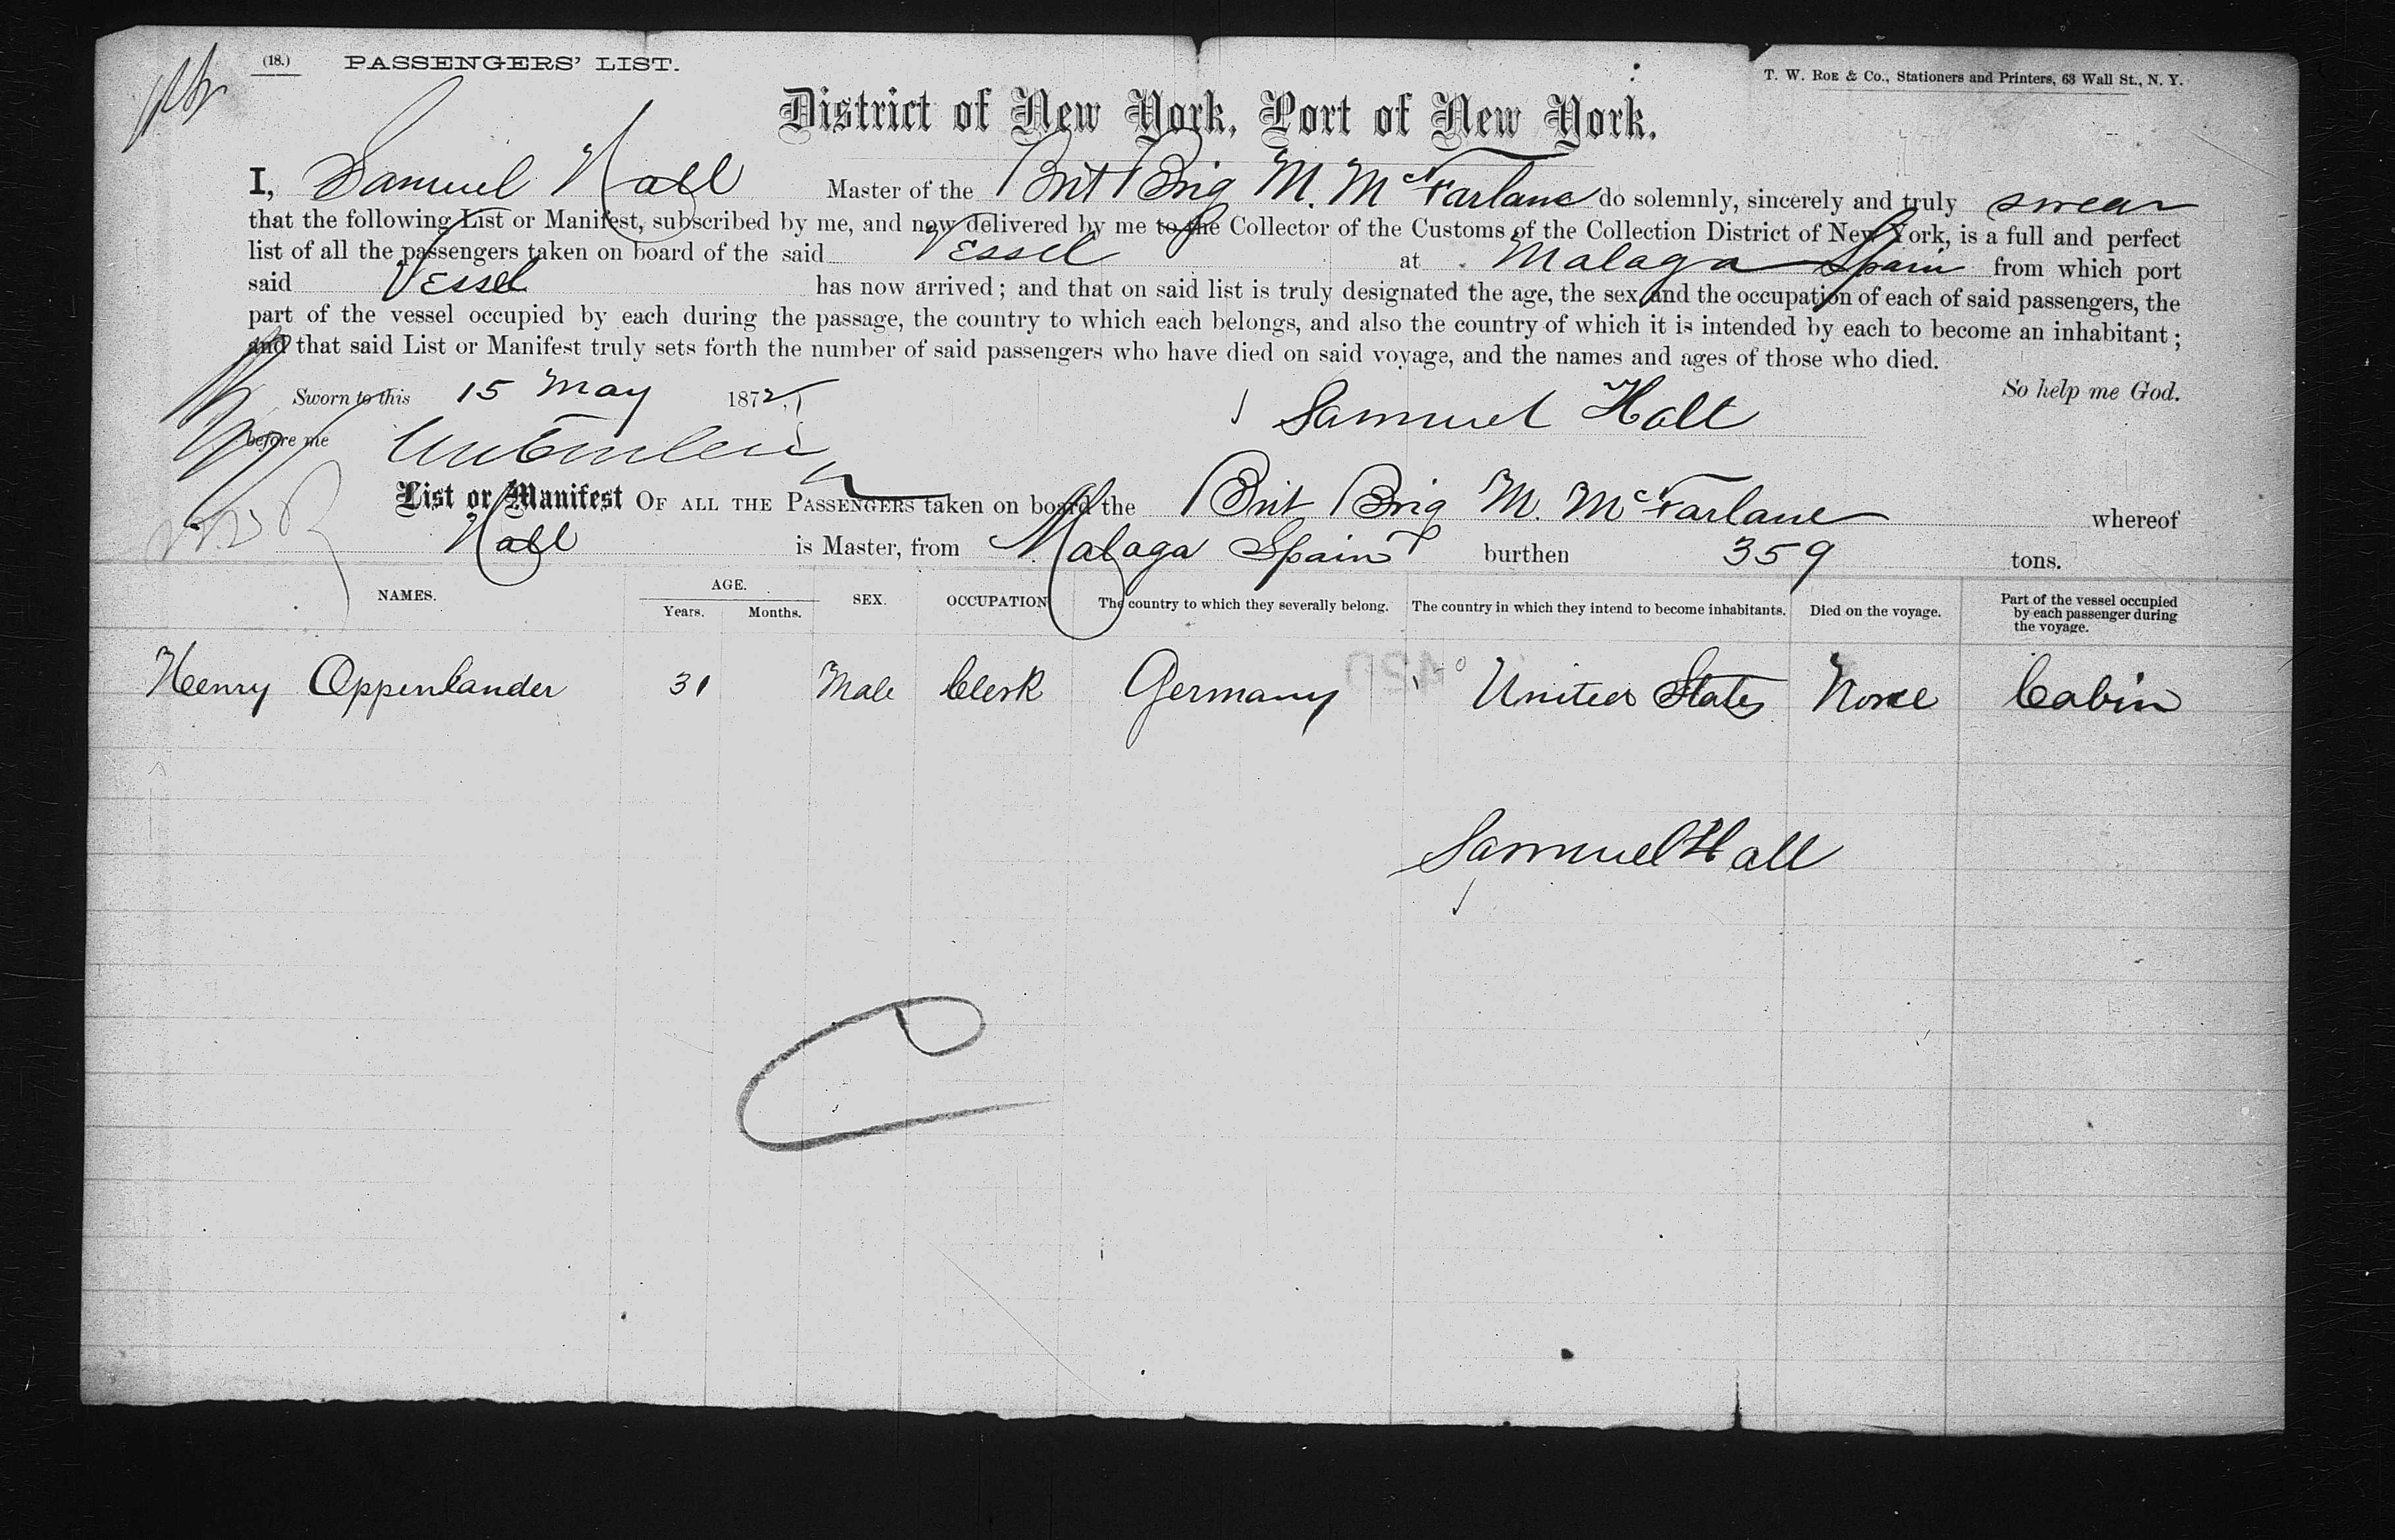 (18.) PASSENGERS' LIST.
T. W. ROE & Co., Stationers and Printers, 63 Wall St., N. Y.
District of New York, Port of New York.
I, Samuel Hall Master of the Brit Brig M. McFarlane do solemnly, sincerely and truly swear
that the following List or Manifest, subscribed by me, and now delivered by me to the Collector of the Customs of the Collection District of New York, is a full and perfect
list of all the passengers taken on board of the said Vessel at Malaga Spain from which port
said Vessel has now arrived; and that on said list is truly designated the age, the sex and the occupation of each of said passengers, the
part of the vessel occupied by each during the passage, the country to which each belongs, and also the country of which it is intended by each to become an inhabitant;
and that said List or Manifest truly sets forth the number of said passengers who have died on said voyage, and the names and ages of those who died.
So help me God.
Sworn to this 15 May 1872
Samuel Hall
before me
List or Manifest OF ALL THE PASSENGERS taken on board the Brit Brig M. McFarlane whereof
Hall is Master, from Malaga Spain burthen 359 tons.
NAMES. AGE. Years. Months. SEX. OCCUPATION The country to which they severally belong. The country in which they intend to become inhabitants. Died on the voyage. Part of the vessel occupied by each passenger during the voyage.
Henry Oppenlander 31 Male Clerk Germany United States None Cabin
Samuel Hall